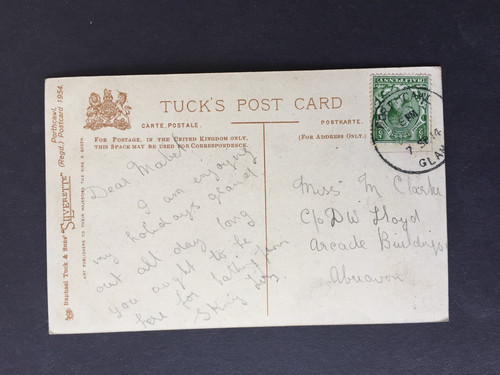 TUCK'S POST CARD
CARTE POSTALE.
POSTKARTE.
FOR POSTAGE, IN THE UNITED KINGDOM ONLY,
THIS SPACE MAY BE USED FOR CORRESPONDENCE.
(FOR ADDRESS ONLY.)
Dear Mabel
I am enjoying
my holidays grand
out all day long
You aught to be
here for bathing
Miss M Clarke
C/o DW Lloyd
Arcade Buildings
Aberavon
HALFPENNY
PM
7 SP 14
GLAM
Porthcawl.
(Regd.) Postcard 1954.
Raphael Tuck & Sons' "SILVERETTE"
ART PUBLISHERS TO THEIR MAJESTIES THE KING & QUEEN